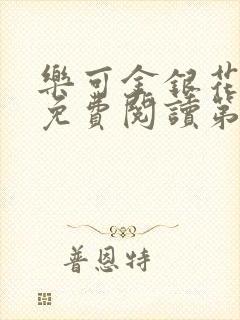 樂可金銀花
免費閱讀第
普恩特